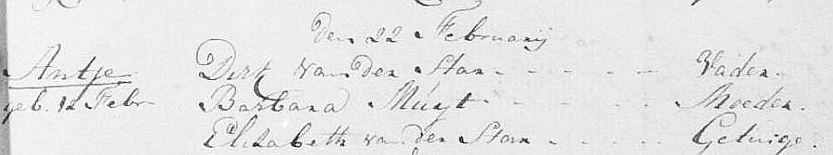 den 22 Februarij
Antje Dirk van den Stan - - - - - Vader.
geb. 12 Febr Barbara Muijt - - - - - Moeder.
Elizabeth van den Stan - - - - - Getuige.